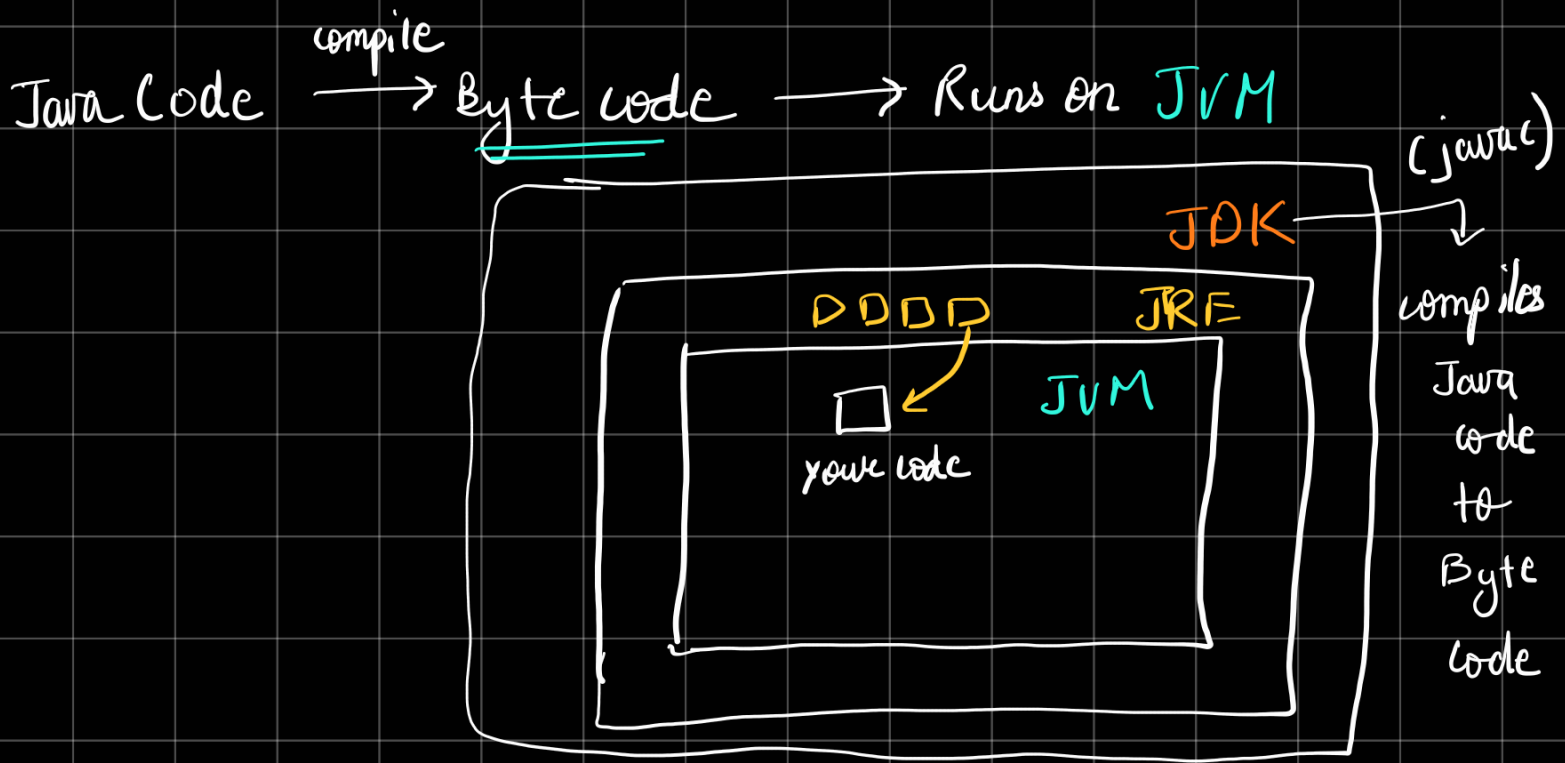 Java Code compile → Byte code → Runs on JVM
(javac)
JDK
JRE
JVM
your code
compiles
Java
code
to
Byte
code